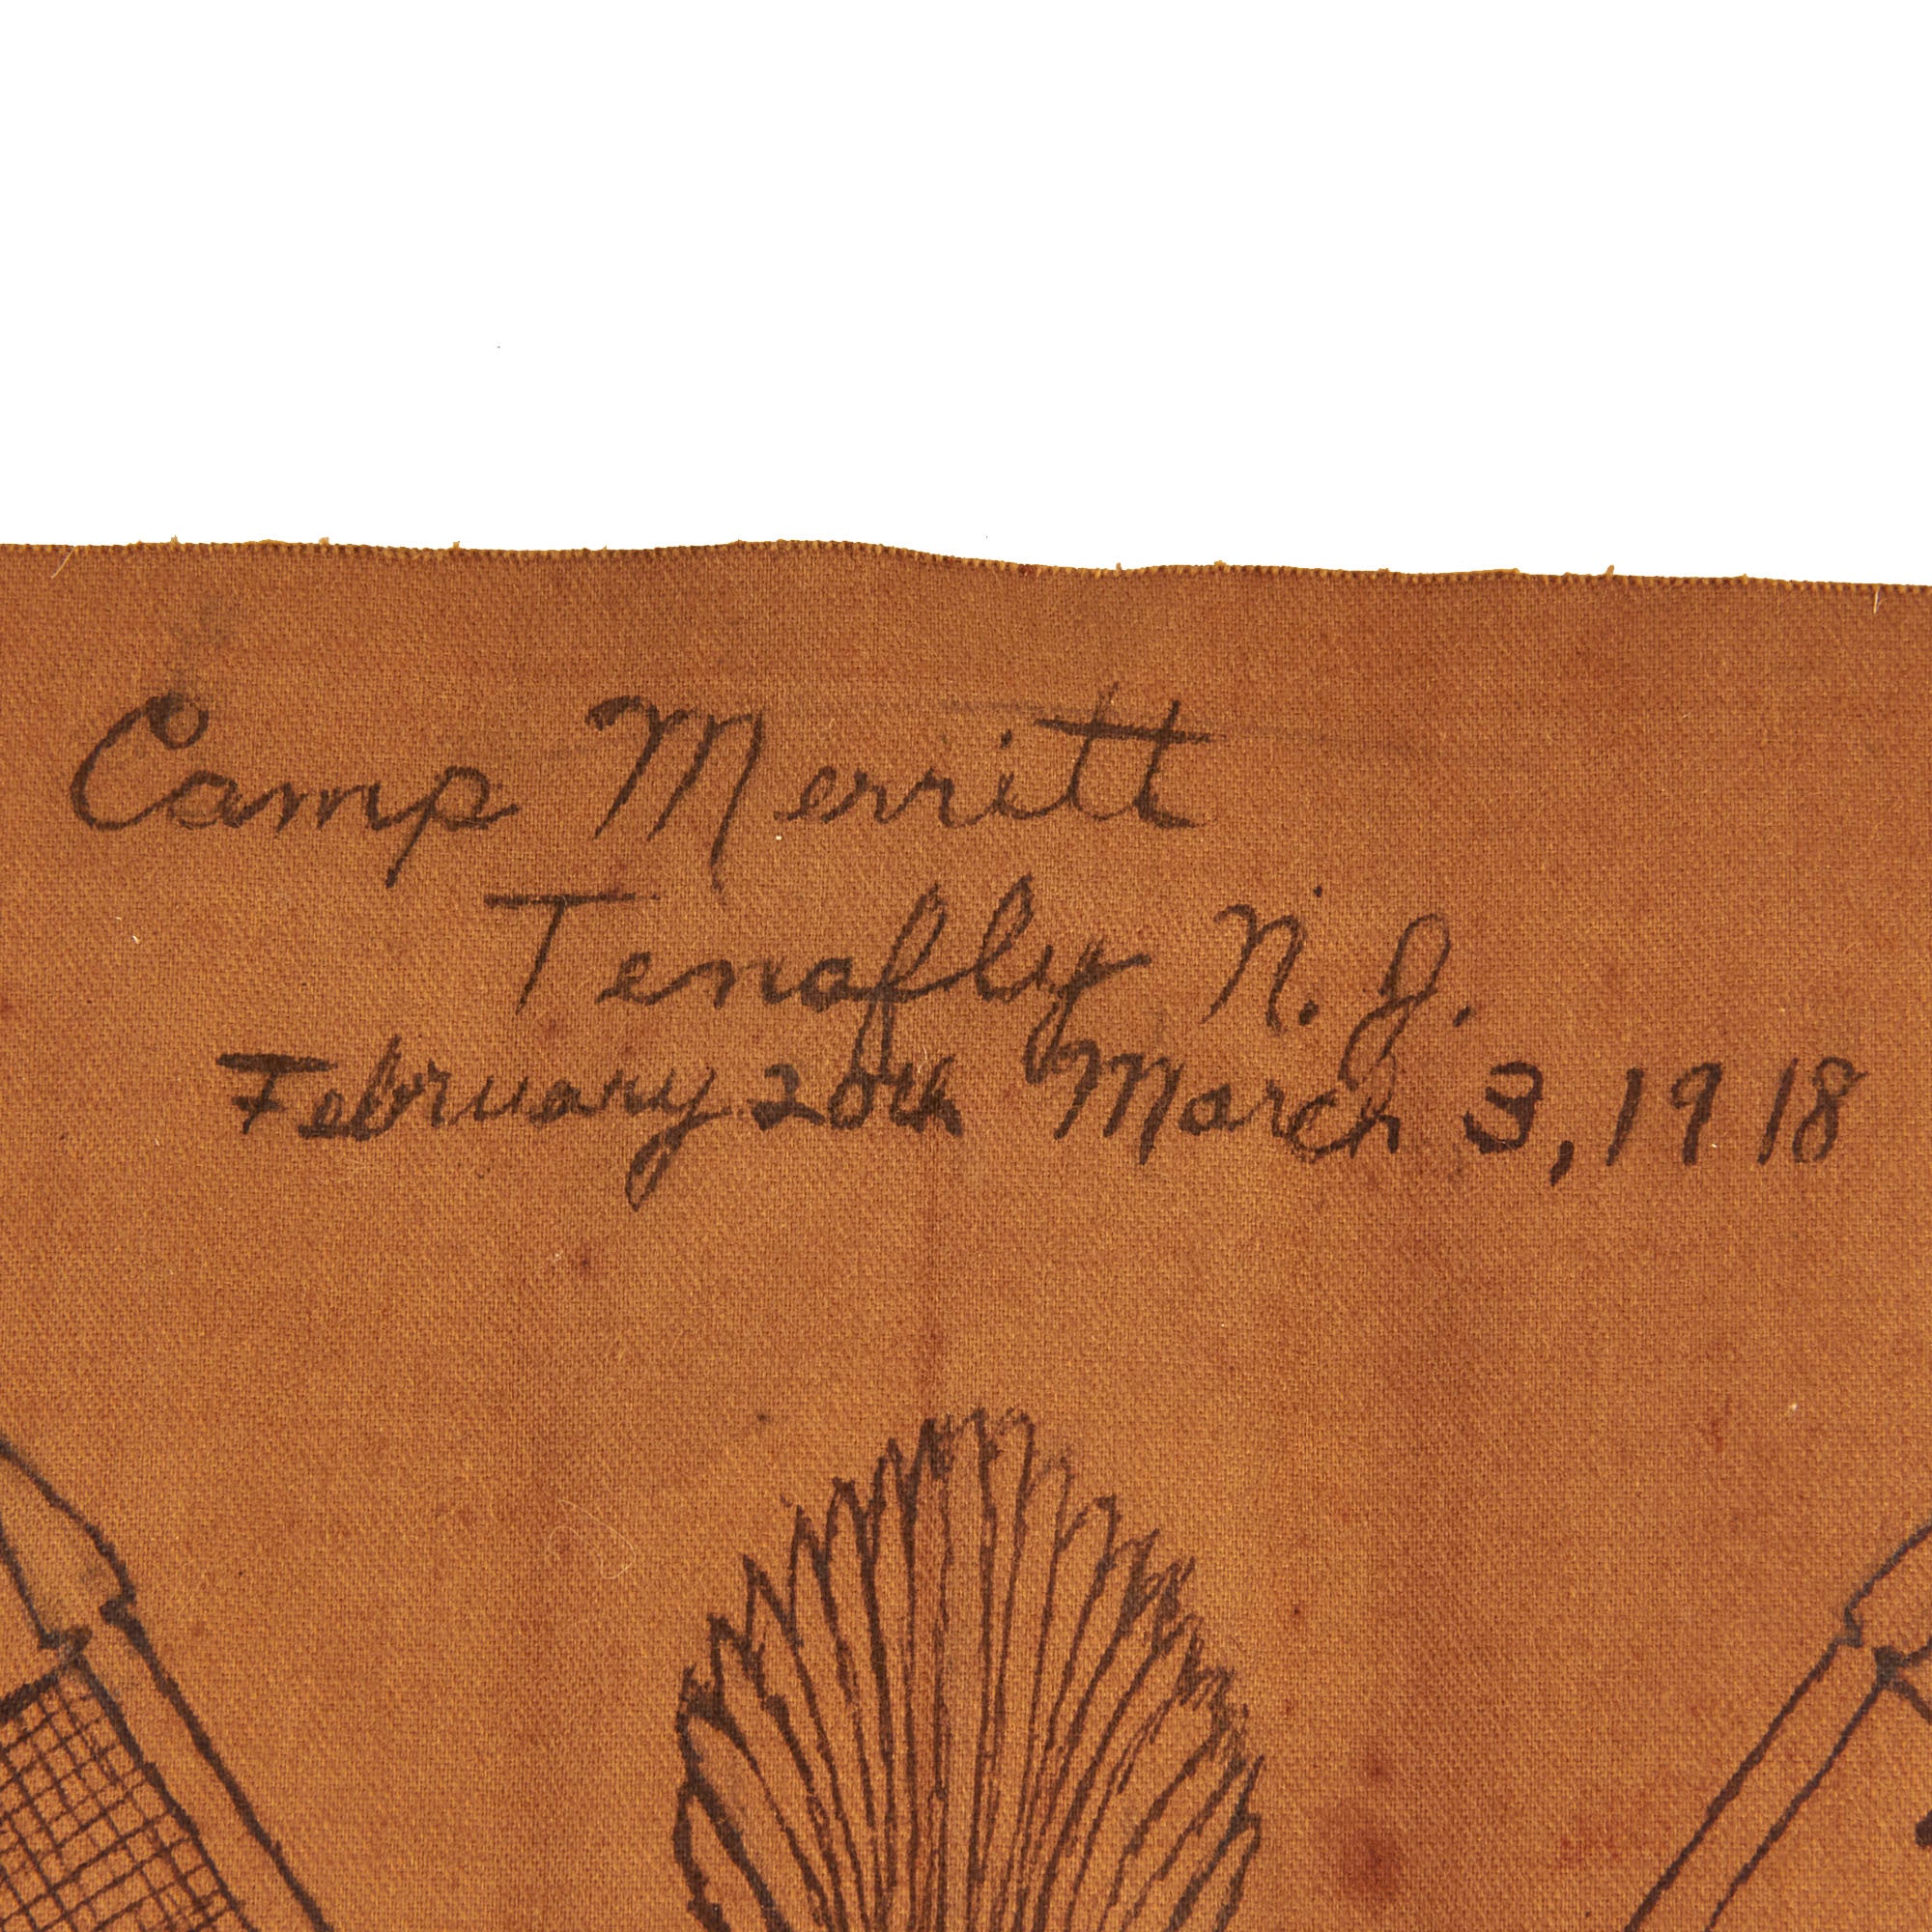 Camp Merritt
Tenafly N. J.
February 20th March 3, 1918